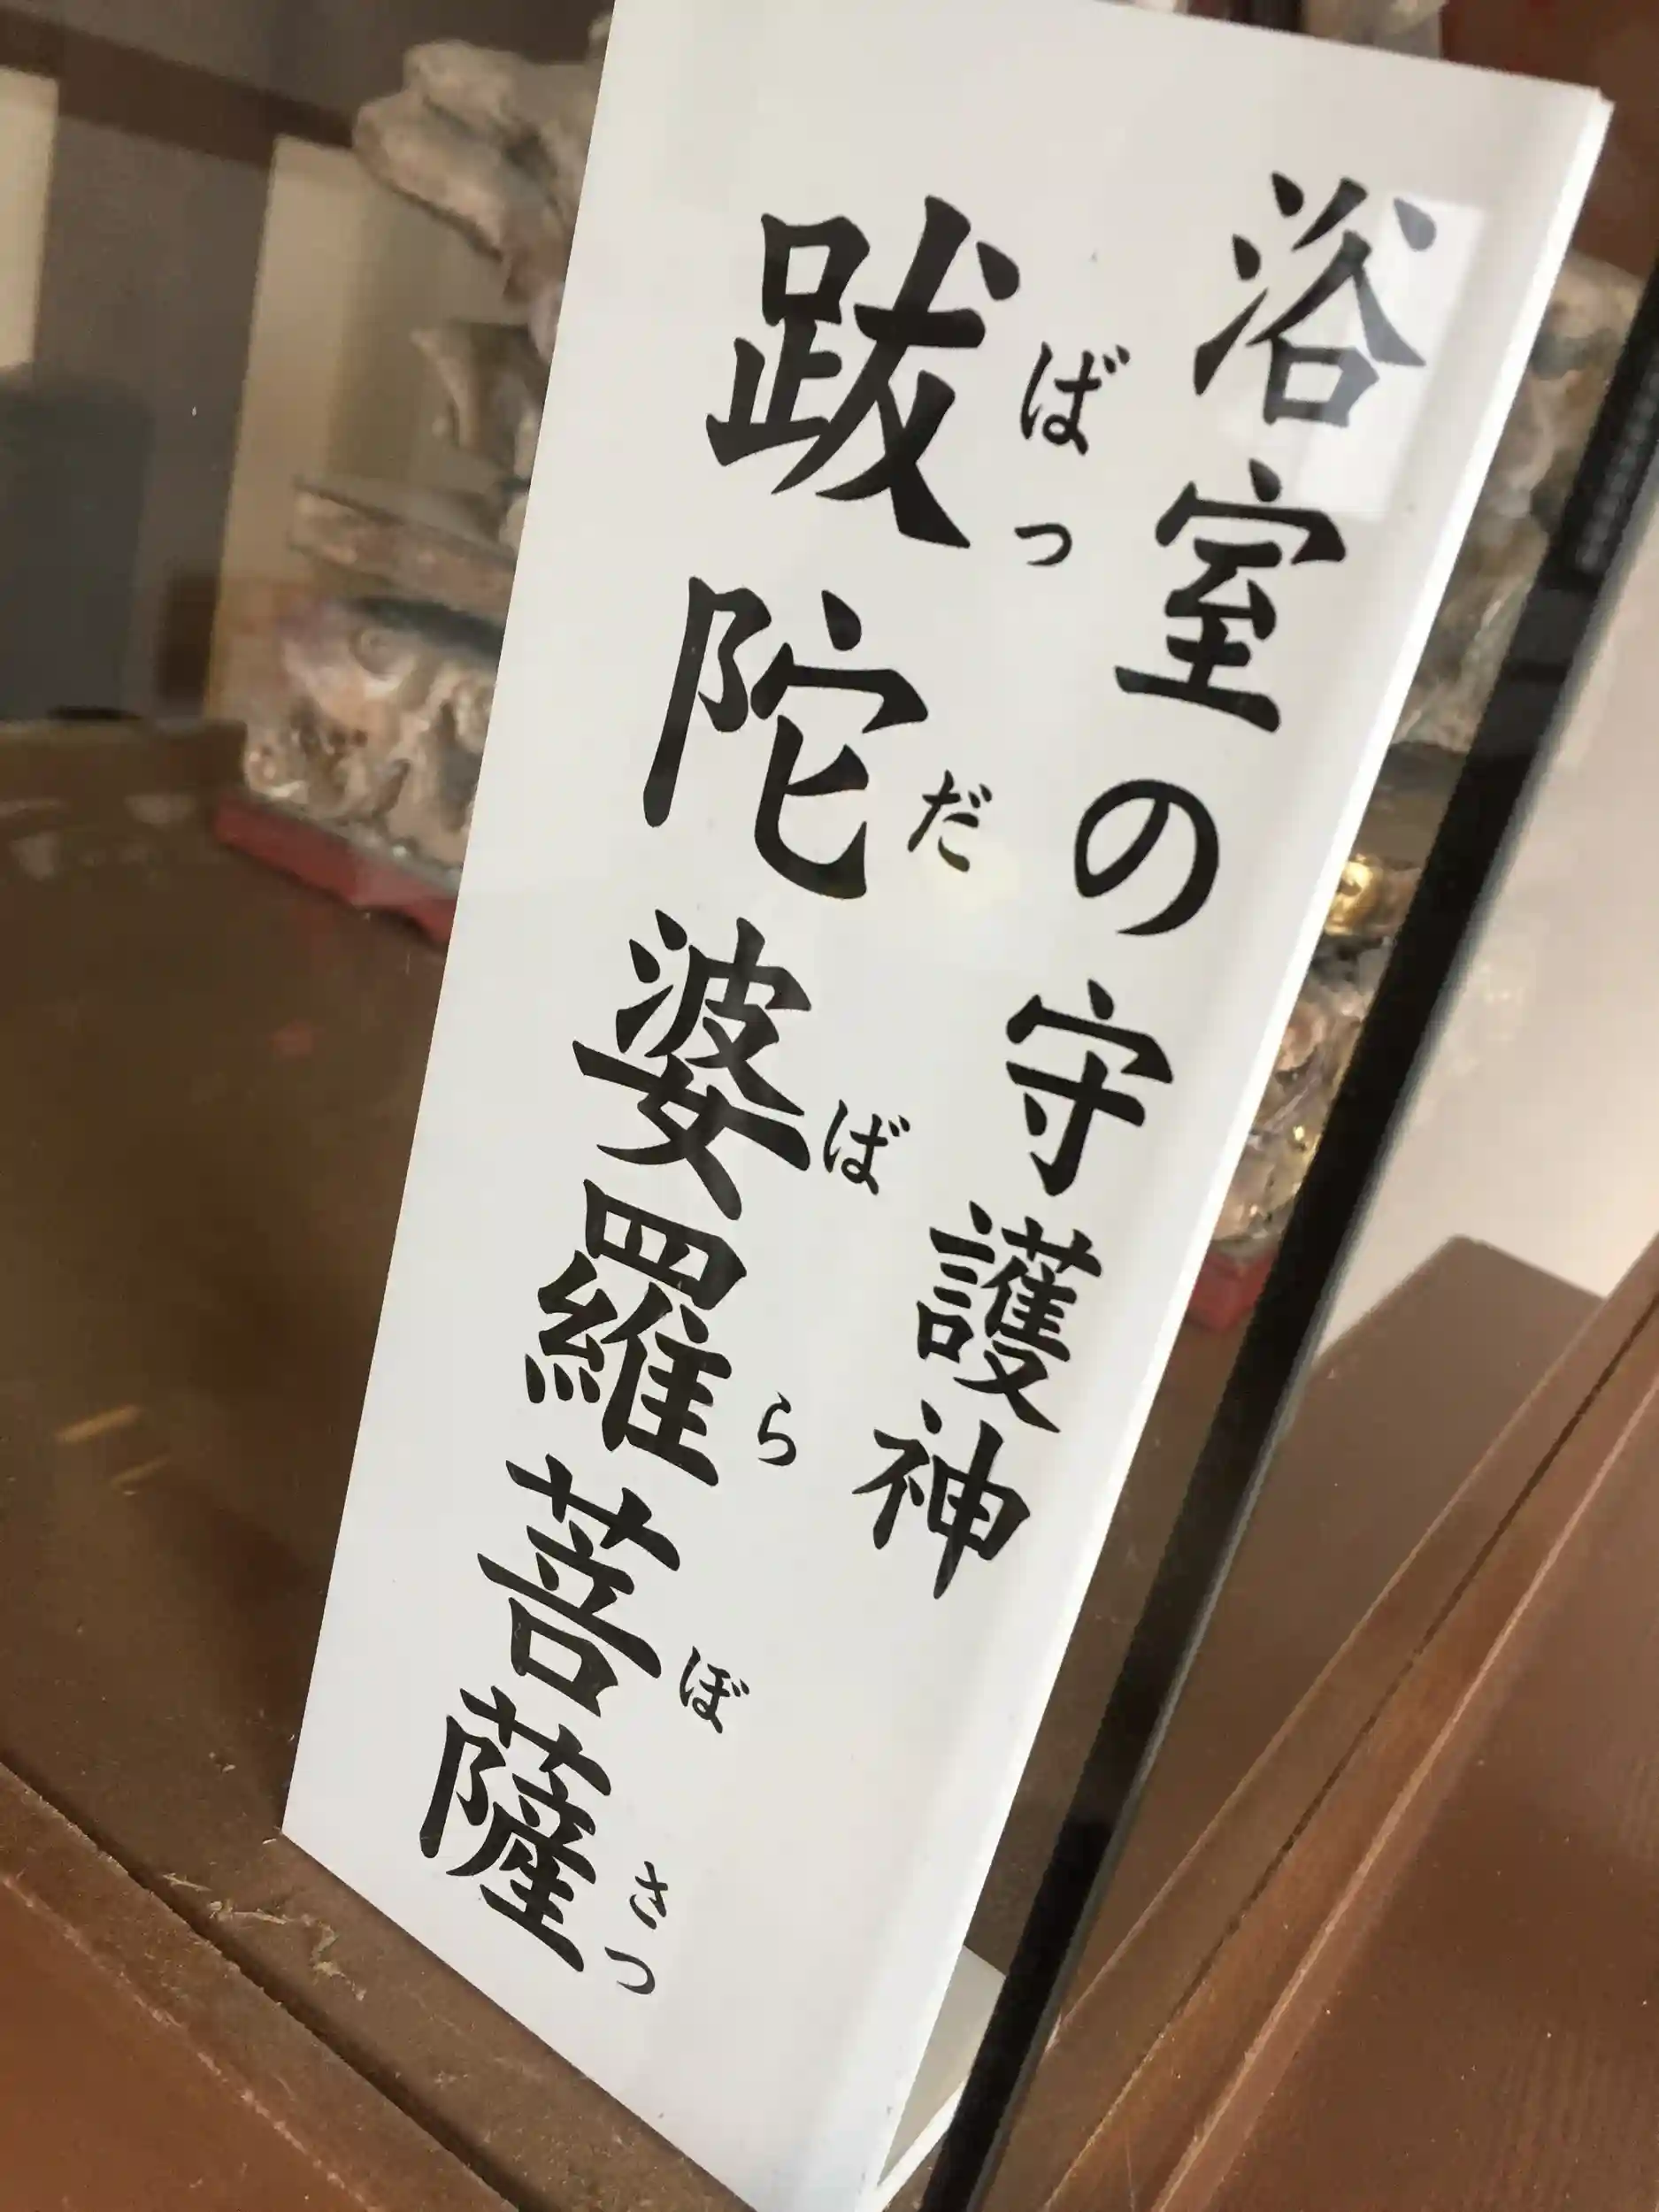 浴室の守護神
跋陀婆羅菩薩
ばつだばらぼさつ